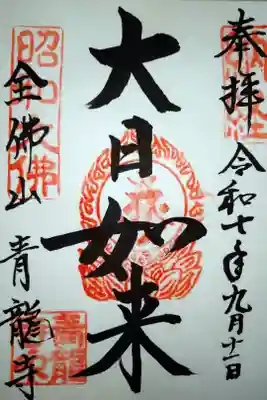 奉拝 令和七年九月十一日
大日如来
昭和大佛
全佛山 青龍寺